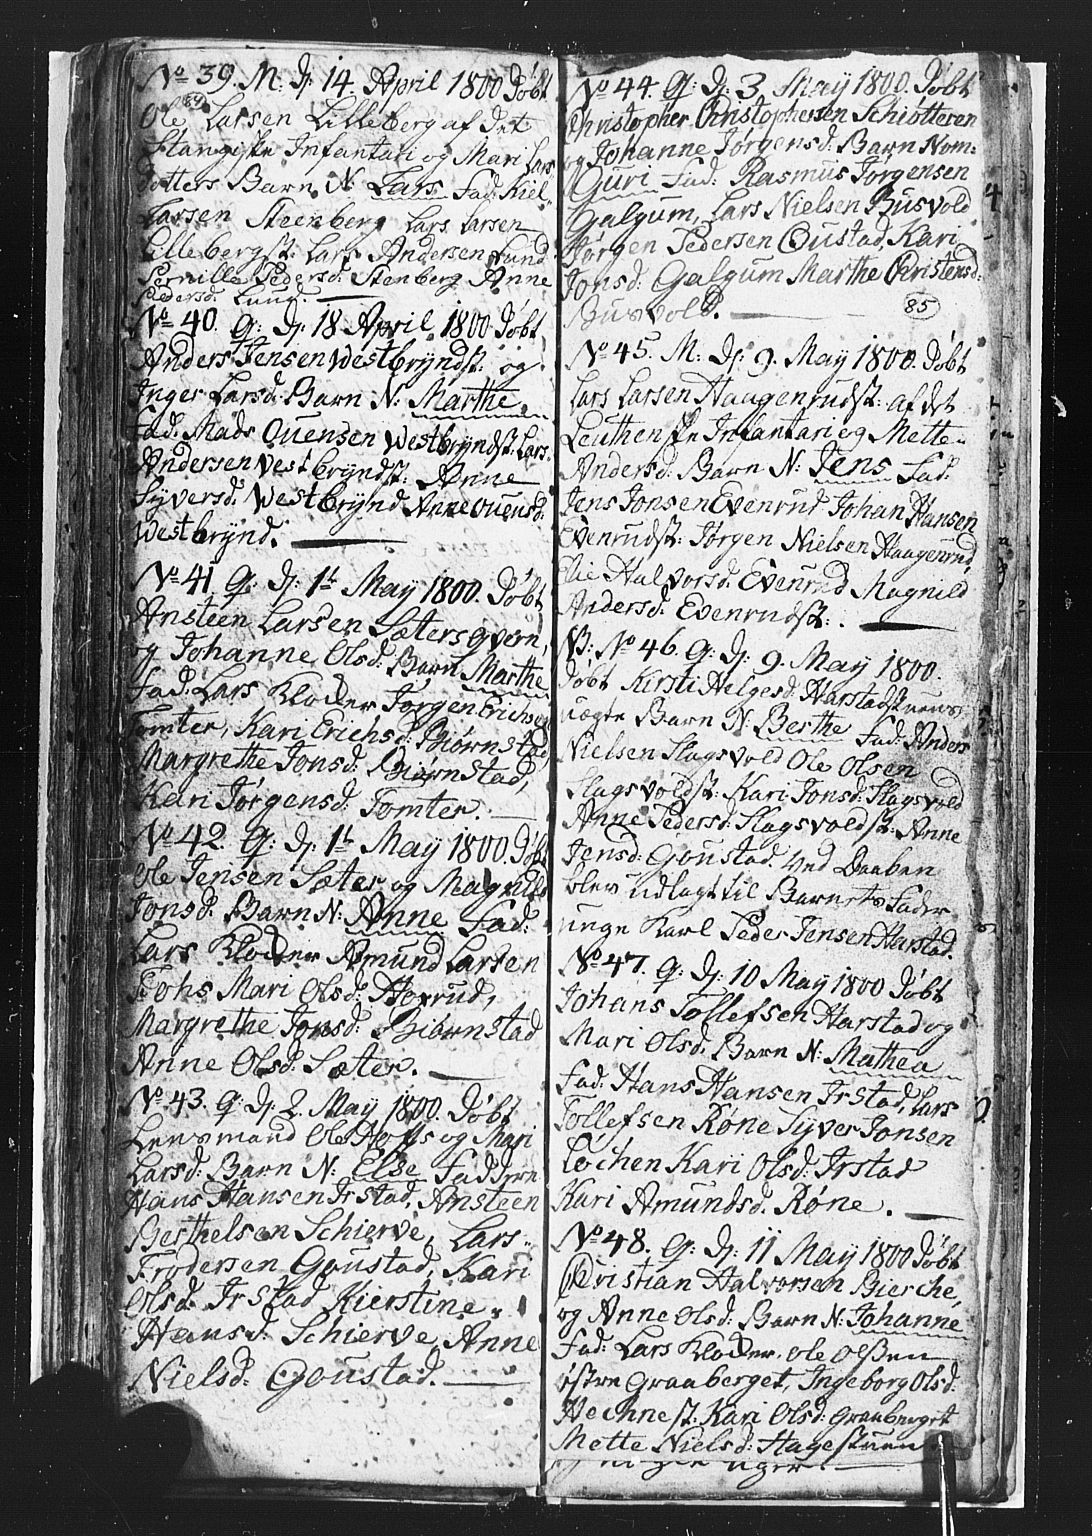 No 39. M: D: 14. April 1800 Døbt
84
Ole Larsen Lilleberg af det
Stangeske Infantari og Mari Lars
dotters Barn N: Lars Fad: Kiel-
Larsen Steenberg Lars Larsen
Lillebergst: Lars Andersen Lund
Pernille Pedersd: Stenberg Anne
Pedersd: Lund.
No 40. G: D: 18 April 1800 Døbt
Anders Jensen Westbryndst: og
Inger Larsd: Barn N: Marthe.
Fad: Mads Ouensen Westbryndst: Lars
Andersen Vestbryndst: Anne
Syversd: Westbrynd Anne Ouensd:
Westbrynd.
No 41. G: D: 1t May 1800. Døbt
Ansteen Larsen Sætersqvern,
og Johanne Olsd: Barn Marthe
Fad: Lars Kloder Jørgen Erichs
Tomter, Kari Erichsd: Biørnstad
Margrethe Jonsd: Biørnstad,
Kari Jørgensd: Tomter.
No 42. G: D: 1t May 1800. Døbt
Ole Jensen Sæter og Magnild
Jonsd: Barn N: Anne Fad:
Lars Kloder Amund Larsen
Mari Olsd:
Margrethe Jonsd: Biørnstad
Anne Olsd: Sæter.
No 43. G: D: 2. May 1800. Døbt
Lensmand Ole Hoffs og Mari
Larsd: Barn N: Else Faddere
Hans Hansen Irstad, Ansteen
Berthelsen Schierve, Lars-
Frodersen Goustad, Kari
Olsd: Irstad Kierstine
Hansd: Schierve, Anne
Nielsd: Goustad.
No 44. G: D: 3. May 1800. Døbt
Christopher Christophersen Schiøtteren
og Johanne Jørgensd: Barn Nom:
Guri Fad: Rasmus Jørgensen
Galgum, Lars Nielsen Busvold
Jørgen Pedersen Oustad, Kari
Jonsd: Galgum Marthe Christensd:
Busvold.
85
No 45. M: D: 9. May 1800. Døbt
Lars Larsen Haugenrudst: af det
Leuthenske Infantari og Mette
Andersd: Barn N: Jens Fad:
Jens Jonsen Evenrud Johan Hansen
Evenrudst: Jørgen Nielsen Haugenrud,
Elie Halvorsd: Evenrud Magnild
Andersd: Evenrudst:.
NB: No 46. G: D: 9. May 1800.
Døbt Kirsti Helgesd: Harstadstuens
uægte Barn N: Berthe Fad: Anders
Nielsen Slagsvold Ole Olsen
Slagsvoldst: Kari Jonsd: Slagsvold
Anne Pedersd: Slagsvoldst: Anne
Jensd: Goustad. Ved Daaben
blev udlagt til Barnets Fader
unge Karl Peder Jensen Harstad.
No 47. G: D: 10 May 1800 Døbt
Johans Tollefsen Harstad og
Mari Olsd: Barn N: Mathea
Fad: Hans Hansen Irstad, Lars
Tollefsen Røne Syver Jonsen
Lochen Kari Olsd: Irstad
Kari Amundsd: Røne.
No 48. G: D: 11 May 1800 Døbt
Christian Halvorsen Bierche,
og Anne Olsd: Barn N: Johanne
Fad: Lars Kloder. Ole Olsen
østre Graaberget, Ingeborg Olsd:
Hechnest: Kari Olsd: Graaberget
Mette Nielsd: Hagestuen
uger.